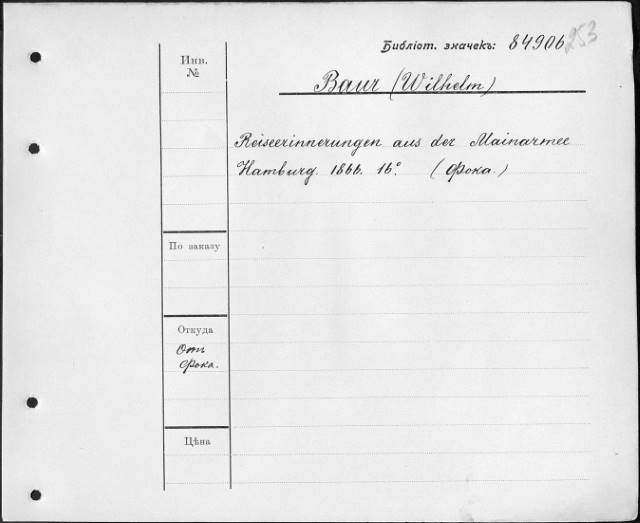 Библіот. значекъ: 84906
253
Инв.
№
Baur (Wilhelm)
Reiseerinnerungen aus der Mainarmee
Hamburg. 1866. 16°. (Фока.)
По заказу
Откуда
Отъ
Фока.
Цѣна